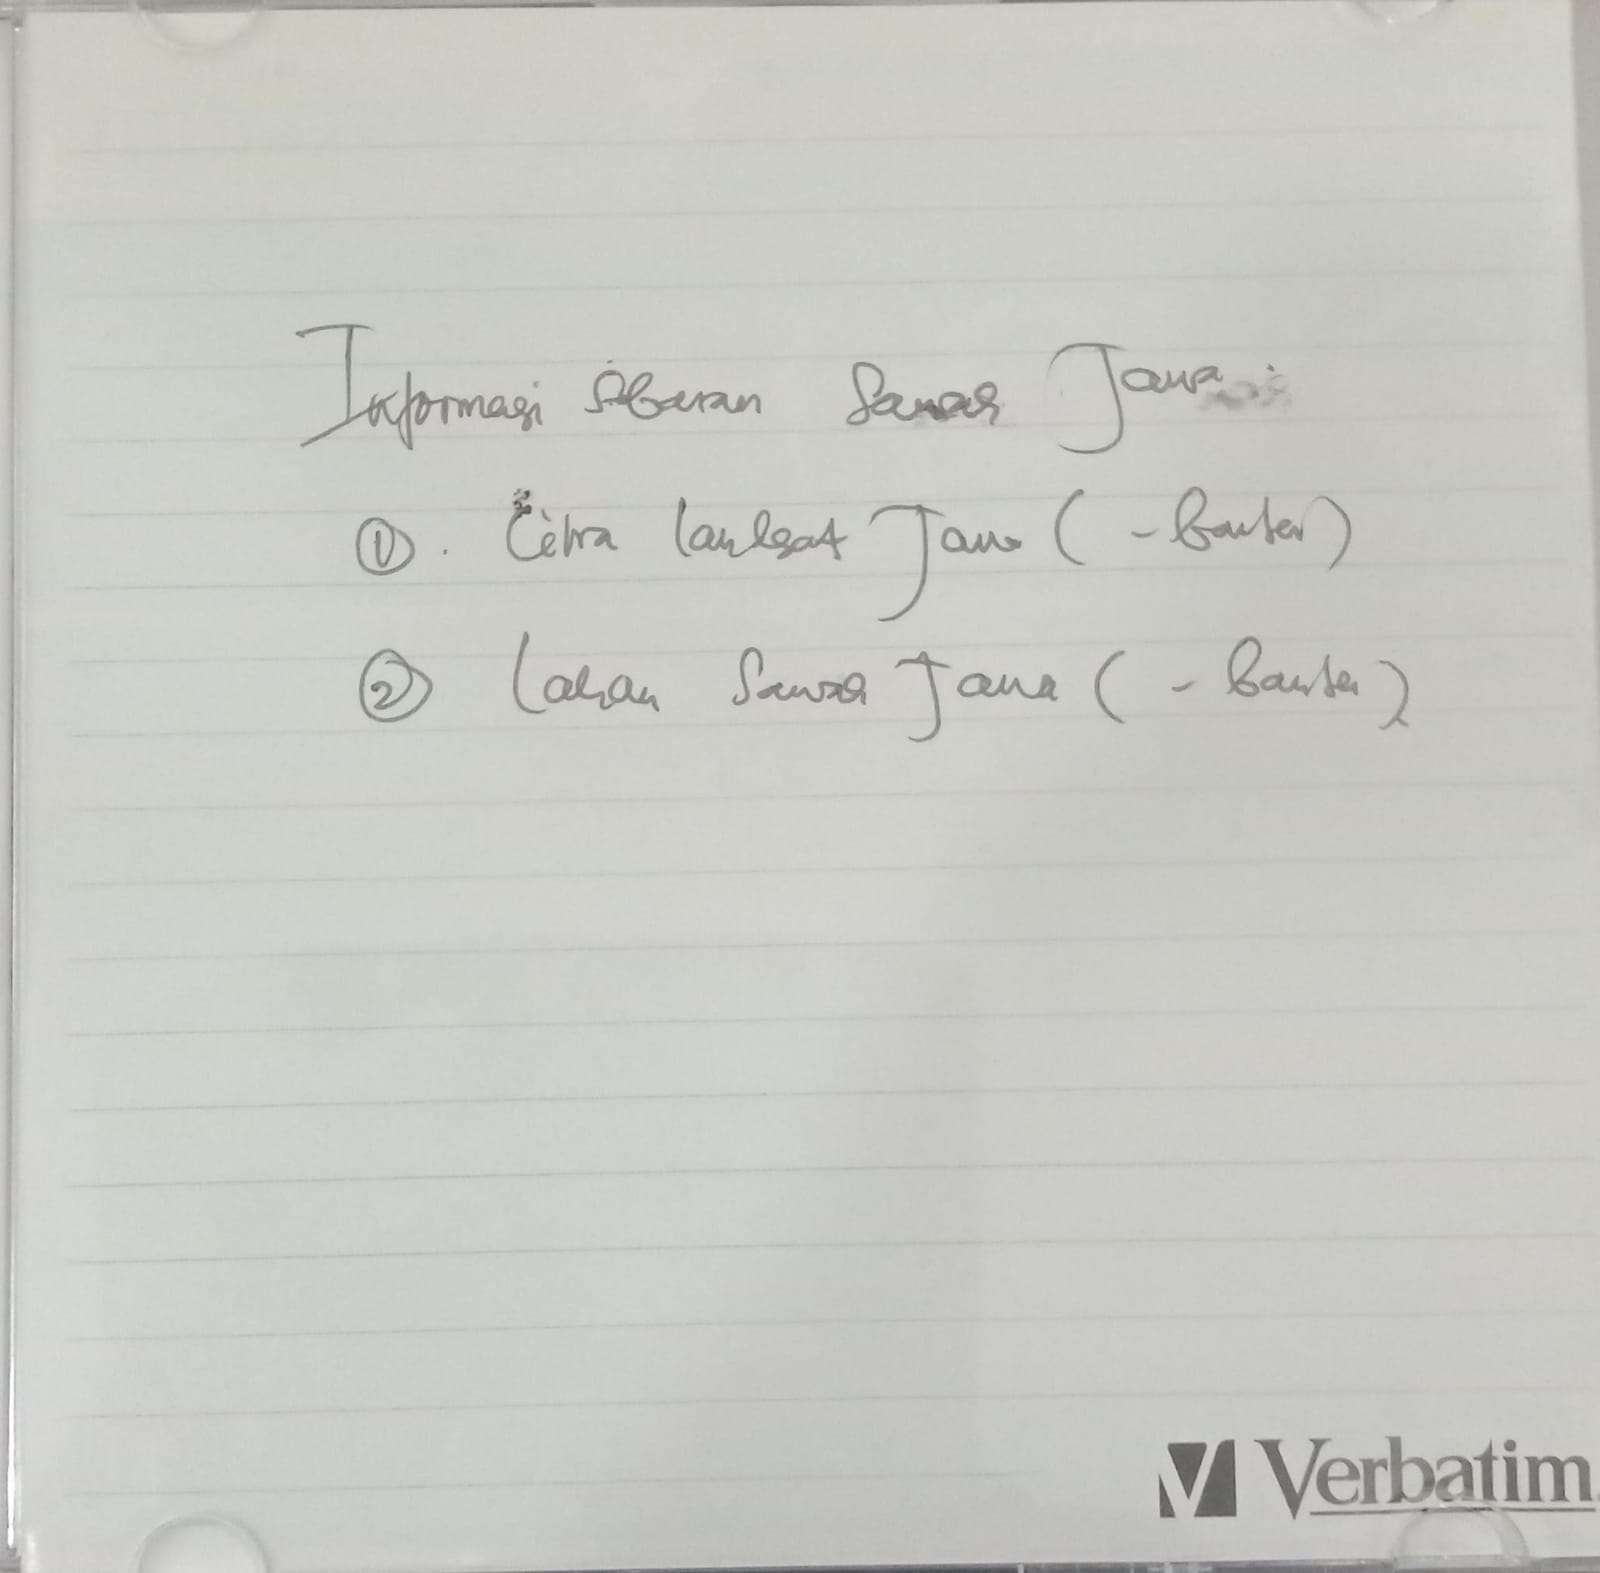 Informasi Sebaran Sawah Jawa :
①. Citra Landsat Jawa ( - Banten)
② Lahan Sawah Jawa ( - Banten)
Verbatim